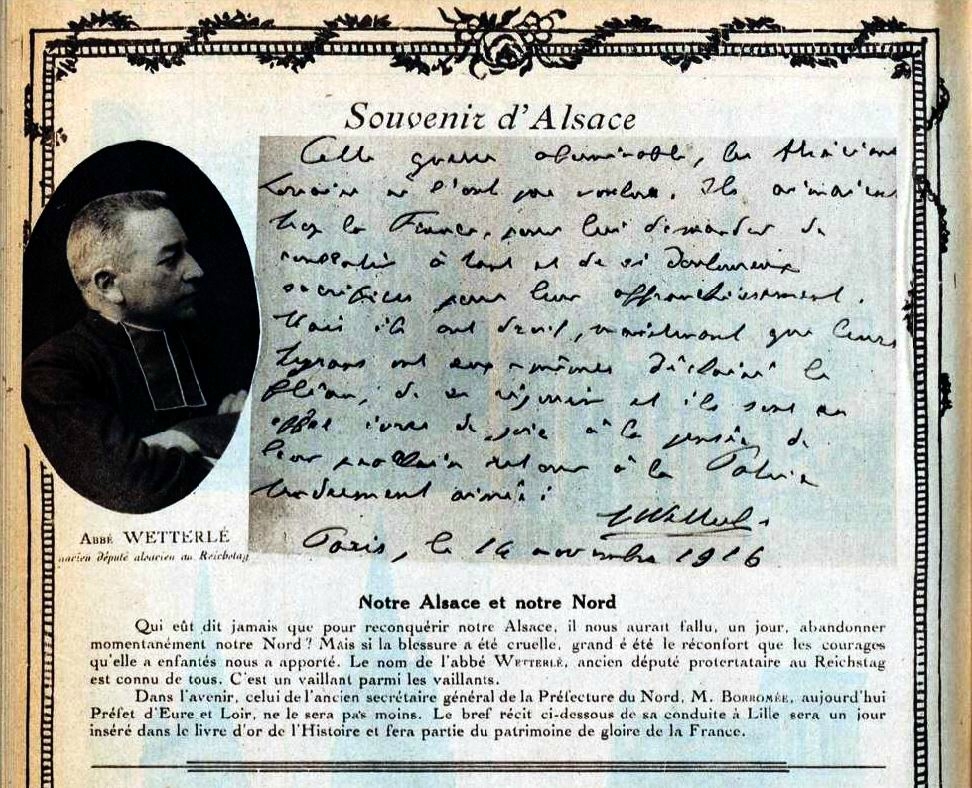 Souvenir d'Alsace
Cette guerre abominable, les Alsaciens
Lorrains ne l'ont pas voulue. Ils aimaient
trop la France, pour lui demander de
consentir à tant et de si douloureux
sacrifices pour leur affranchissement.
Mais ils ont droit, maintenant que leurs
tyrans ont eux-mêmes déchainé le
fléau, de se réjouir et ils sont en
effet ivres de joie à la pensée de
leur prochain retour à la Patrie
tendrement aimée!
Wetterlé
Paris, le 14 novembre 1916
Abbé WETTERLÉ
ancien député alsacien au Reichstag
Notre Alsace et notre Nord
Qui eût dit jamais que pour reconquérir notre Alsace, il nous aurait fallu, un jour, abandonner
momentanément notre Nord ? Mais si la blessure a été cruelle, grand é été le réconfort que les courages
qu'elle a enfantés nous a apporté. Le nom de l'abbé WETTERLÉ, ancien député protertataire au Reichstag
est connu de tous. C'est un vaillant parmi les vaillants.
Dans l'avenir, celui de l'ancien secrétaire général de la Préfecture du Nord, M. BORROMÉE, aujourd'hui
Préfet d'Eure et Loir, ne le sera pas moins. Le bref récit ci-dessous de sa conduite à Lille sera un jour
inséré dans le livre d'or de l'Histoire et fera partie du patrimoine de gloire de la France.